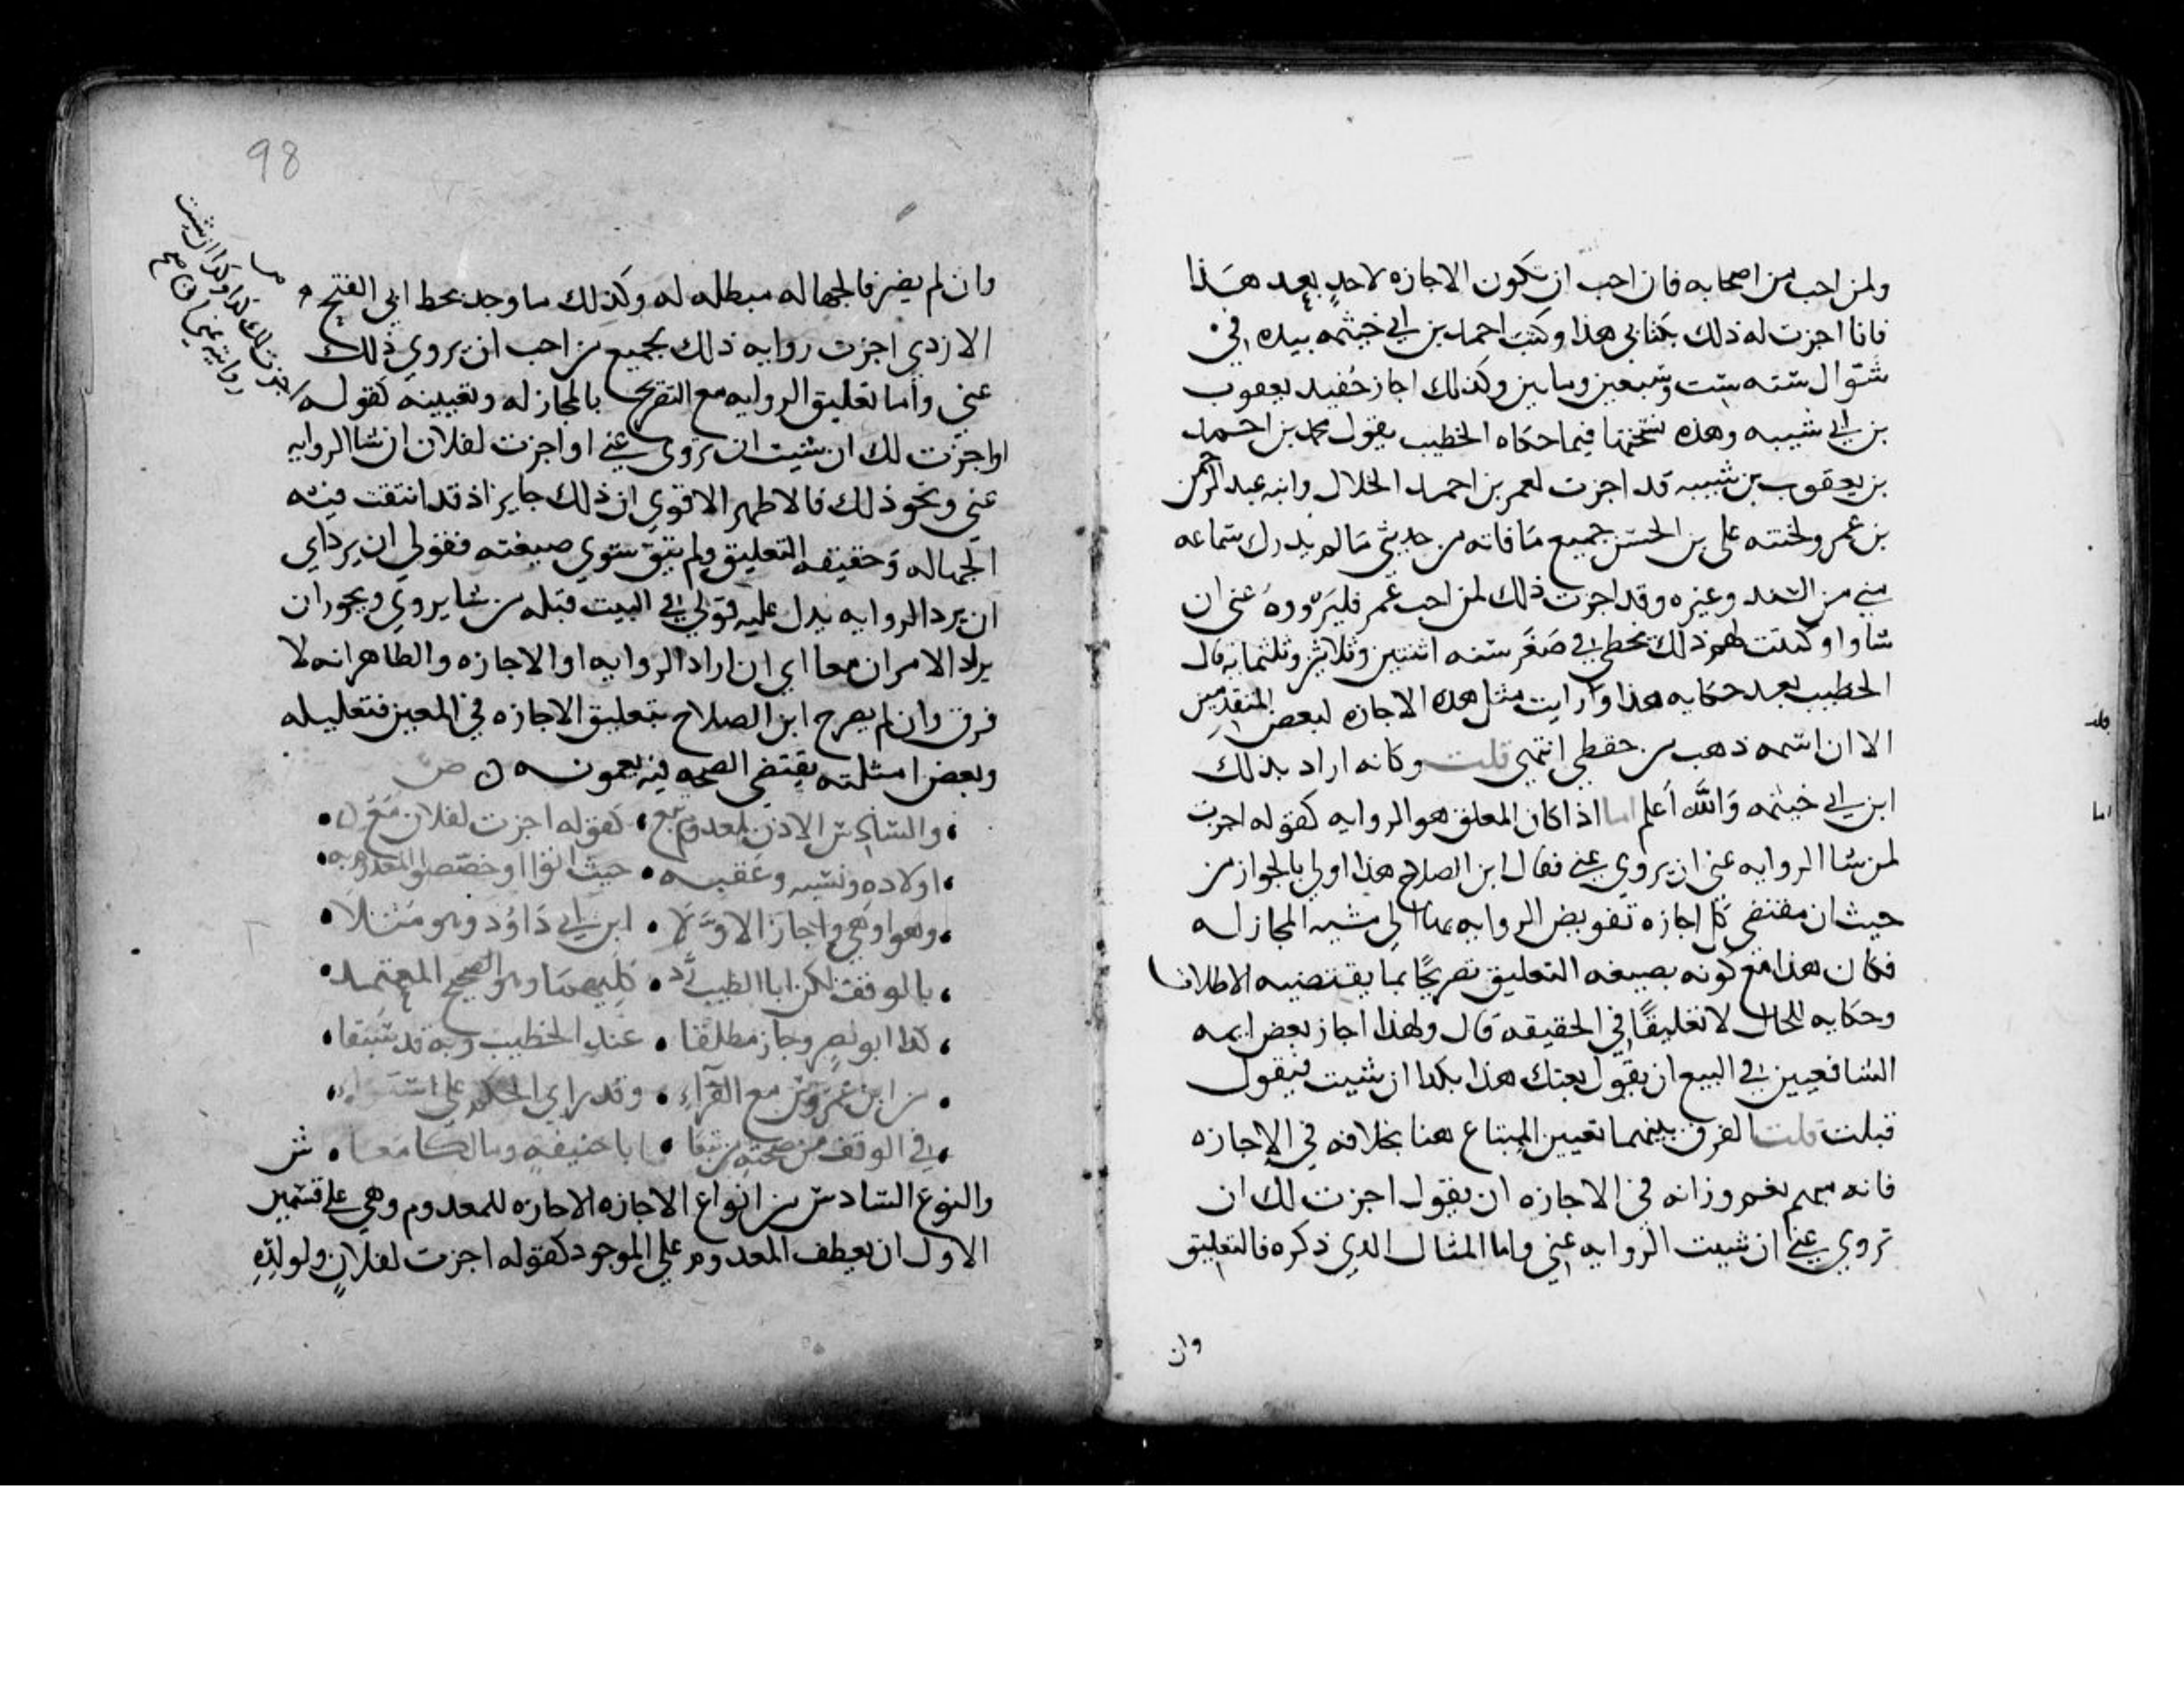 ولمن احب من اصحابه فان احب ان تكون الاجازه لاحد بعد هذا
فانا اجزت له ذلك بكتابي هذا وكتب احمد بن ابي خيثمه بيده في
شوال سنه ست وسبعين ومايتين وكذلك اجاز حفيد يعقوب
بن ابي شيبه وهذه نسختها فيما حكاه الخطيب يقول محمد بن احمد
بن يعقوب بن شيبه قد اجزت لعمر بن احمد الخلال وابنه عبد الرحمن
بن عمر ولختنه علي بن الحسن جميع ما فاته من حديثي مما لم يدرك سماعه
مني من المسند وغيره وقد اجزت ذلك لمن احب عمر فليرووه عني ان
شاوا وكتبت لهم ذلك بخطي في صفر سنه اثنتين وثلاثين وثلثمايه قال
الخطيب بعد حكايه هذا ورايت مثل هذه الاجازه لبعض المتقدمين
الا ان اسمه ذهب من حفظي انتهي قلت وكانه اراد بذلك
ابن ابي خيثمه والله اعلم اما اذا كان المعلق هو الروايه كقوله اجزت
لمن شا الروايه عني ان يروي عني فقال ابن الصلاح هذا اولي بالجواز من
حيث ان مقتضي كل اجازه تفويض الروايه بها الي مشيه المجاز له
فكان هذا مع كونه بصيغه التعليق تصريحا بما يقتضيه الاطلاق
وحكايه للحال لا تعليقا في الحقيقه قال ولهذا اجاز بعض ايمه
الشافعيين في البيع ان يقول بعتك هذا بكذا ان شيت فيقول
قبلت قلت الفرق بينهما تعيين المبتاع هنا بخلافه في الاجازه
فانه مبهم نعم وزانه في الاجازه ان يقول اجزت لك ان
تروي عني ان شيت الروايه عني واما المثال الذي ذكره فالتعليق
وان
قلت
اما
98
وان لم يضر فالجهاله مبطله له وكذلك ما وجد بخط ابي الفتح
الازدي اجزت روايه ذلك لجميع من احب ان يروي ذلك
عني واما تعليق الروايه مع التصريح بالمجاز له وتعيينه كقوله
اجزت لك كذا وكذا ان شيت
روايته عني
او اجزت لك ان شيت ان تروي عني او اجزت لفلان ان شا الروايه
عني ونحو ذلك فالاظهر الاقوي ان ذلك جايز اذ قد انتفت فيه
الجهاله وحقيقه التعليق ولم يبق سوي صيغته فقولي ان يرد اي
ان يرد الروايه يدل عليه قولي في البيت قبله من شا يروي ويجوز ان
يراد الامران معا اي ان اراد الروايه او الاجازه والظاهر انه لا
فرق وان لم يصرح ابن الصلاح بتعليق الاجازه في المعين فتعليله
وبعض امثلته يقتضي الصحه فيه بعمومه ص
والسادس الاذن لمعدوم تبع كقوله اجزت لفلان مع
اولاده ونسله وعقبه حيث اتوا او خصص المعدوم به
وهو اوهي واجاز الاولا ابن ابي داود وهو مثلا
بالوقف لكن ابا الطيب رد كليهما وهو الصحيح المعتمد
كذا ابو نصر وجاز مطلقا عند الخطيب وبه قد سبقا
من ابن عمروس مع الفراء وقد راي الحكم علي استواء
في الوقف من صحته من تبعا ابا حنيفه ومالكا معا ش
والنوع السادس من انواع الاجازه الاجازه للمعدوم وهي علي قسمين
الاول ان يعطف المعدوم علي الموجود كقوله اجزت لفلان ولولده